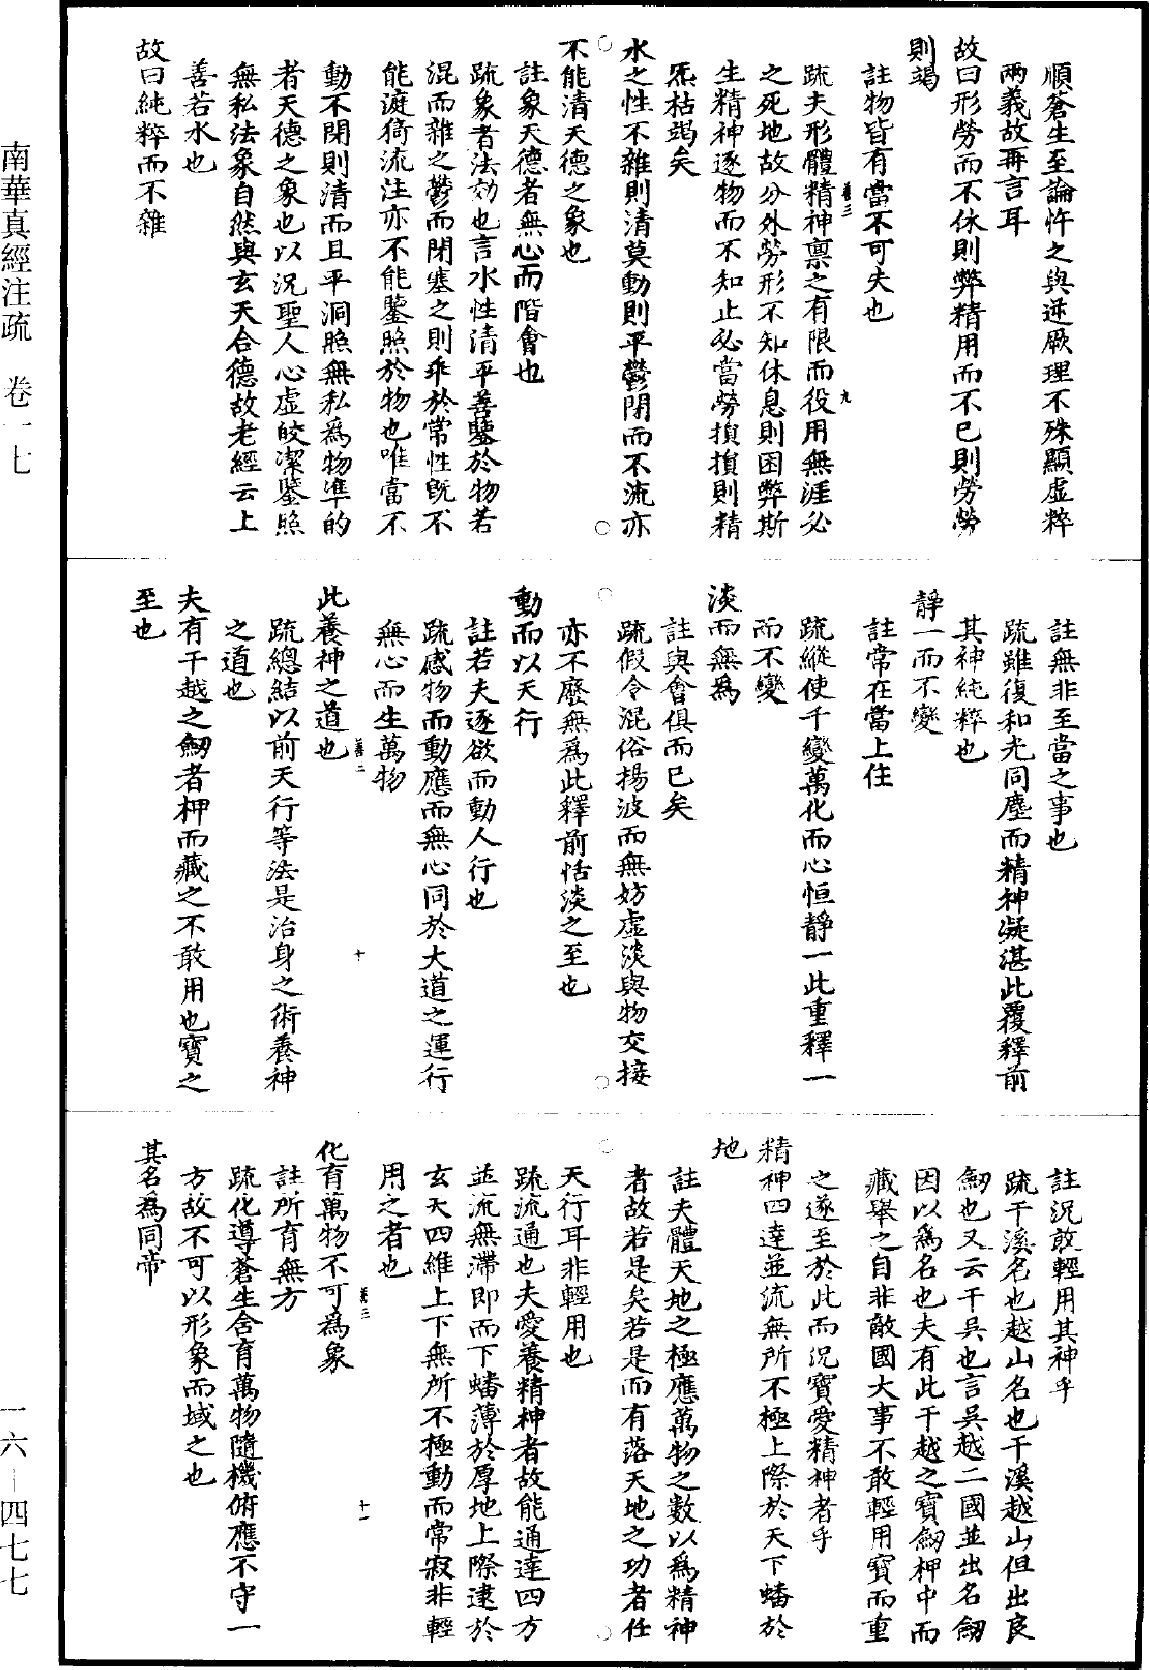 順蒼生至論忤之與逆厥理不殊顯虛粹
兩義故再言耳
故曰形勞而不休則弊精用而不已則勞勞
則竭
註物皆有當不可失也
疏夫形體精神禀之有限而役用無涯必
之死地故分外勞形不知休息則困弊斯
生精神逐物而不知止必當勞損損則精
炁枯竭矣
水之性不雜則清莫動則平鬱閉而不流亦
不能清天德之象也
註象天德者無心而階會也
疏象者法効也言水性清平善鑒於物若
混而雜之鬱而閉塞之則乖於常性既不
能漣猗流注亦不能鑒照於物也唯當不
動不閉則清而且平洞照無私為物準的
者天德之象也以況聖人心虛皎潔鑒照
無私法象自然與玄天合德故老經云上
善若水也
故曰純粹而不雜
註無非至當之事也
疏雖復和光同塵而精神凝湛此覆釋前
其神純粹也
靜一而不變
註常在當上住
疏縱使千變萬化而心恒靜一此重釋一
而不變
淡而無為
註與會俱而已矣
疏假令混俗揚波而無妨虛淡與物交接
亦不廢無為此釋前恬淡之至也
動而以天行
註若夫逐欲而動人行也
疏感物而動應而無心同於大道之運行
無心而生萬物
此養神之道也
疏總結以前天行等法是治身之術養神
之道也
夫有干越之劒者柙而藏之不敢用也寶之
至也
註況敢輕用其神乎
疏干溪名也越山名也干溪越山但出良
劒也又云干吳也言吳越二國並出名劒
因以為名也夫有此干越之寶劒柙中而
藏舉之自非敵國大事不敢輕用寶而重
之遂至於此而況寶愛精神者乎
精神四達並流無所不極上際於天下蟠於
地
註夫體天地之極應萬物之數以為精神
者故若是矣若是而有落天地之功者任
天行耳非輕用也
疏流通也夫愛養精神者故能通達四方
並流無滯即而下蟠薄於厚地上際逮於
玄天四維上下無所不極動而常寂非輕
用之者也
化育萬物不可為象
註所育無方
疏化導蒼生含育萬物隨機俯應不守一
方故不可以形象而域之也
其名為同帝
南華真經注疏 卷一七
一六—四七七